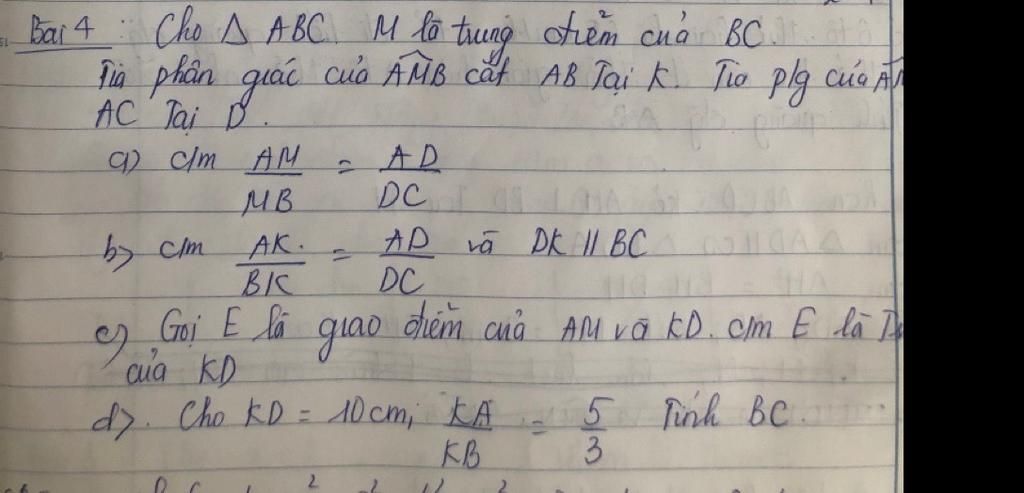 Bài 4 : Cho Δ ABC. M là trung điểm của BC.
Tia phân giác của AMB cắt AB tại K. Tia p/g của
AC Tại D.
a) c/m AM/MB = AD/DC
b) c/m AK/BK = AD/DC và DK // BC
c) Gọi E là giao điểm của AM và KD. c/m E là
của KD
d). Cho KD = 10cm, KA/KB = 5/3 Tính BC.